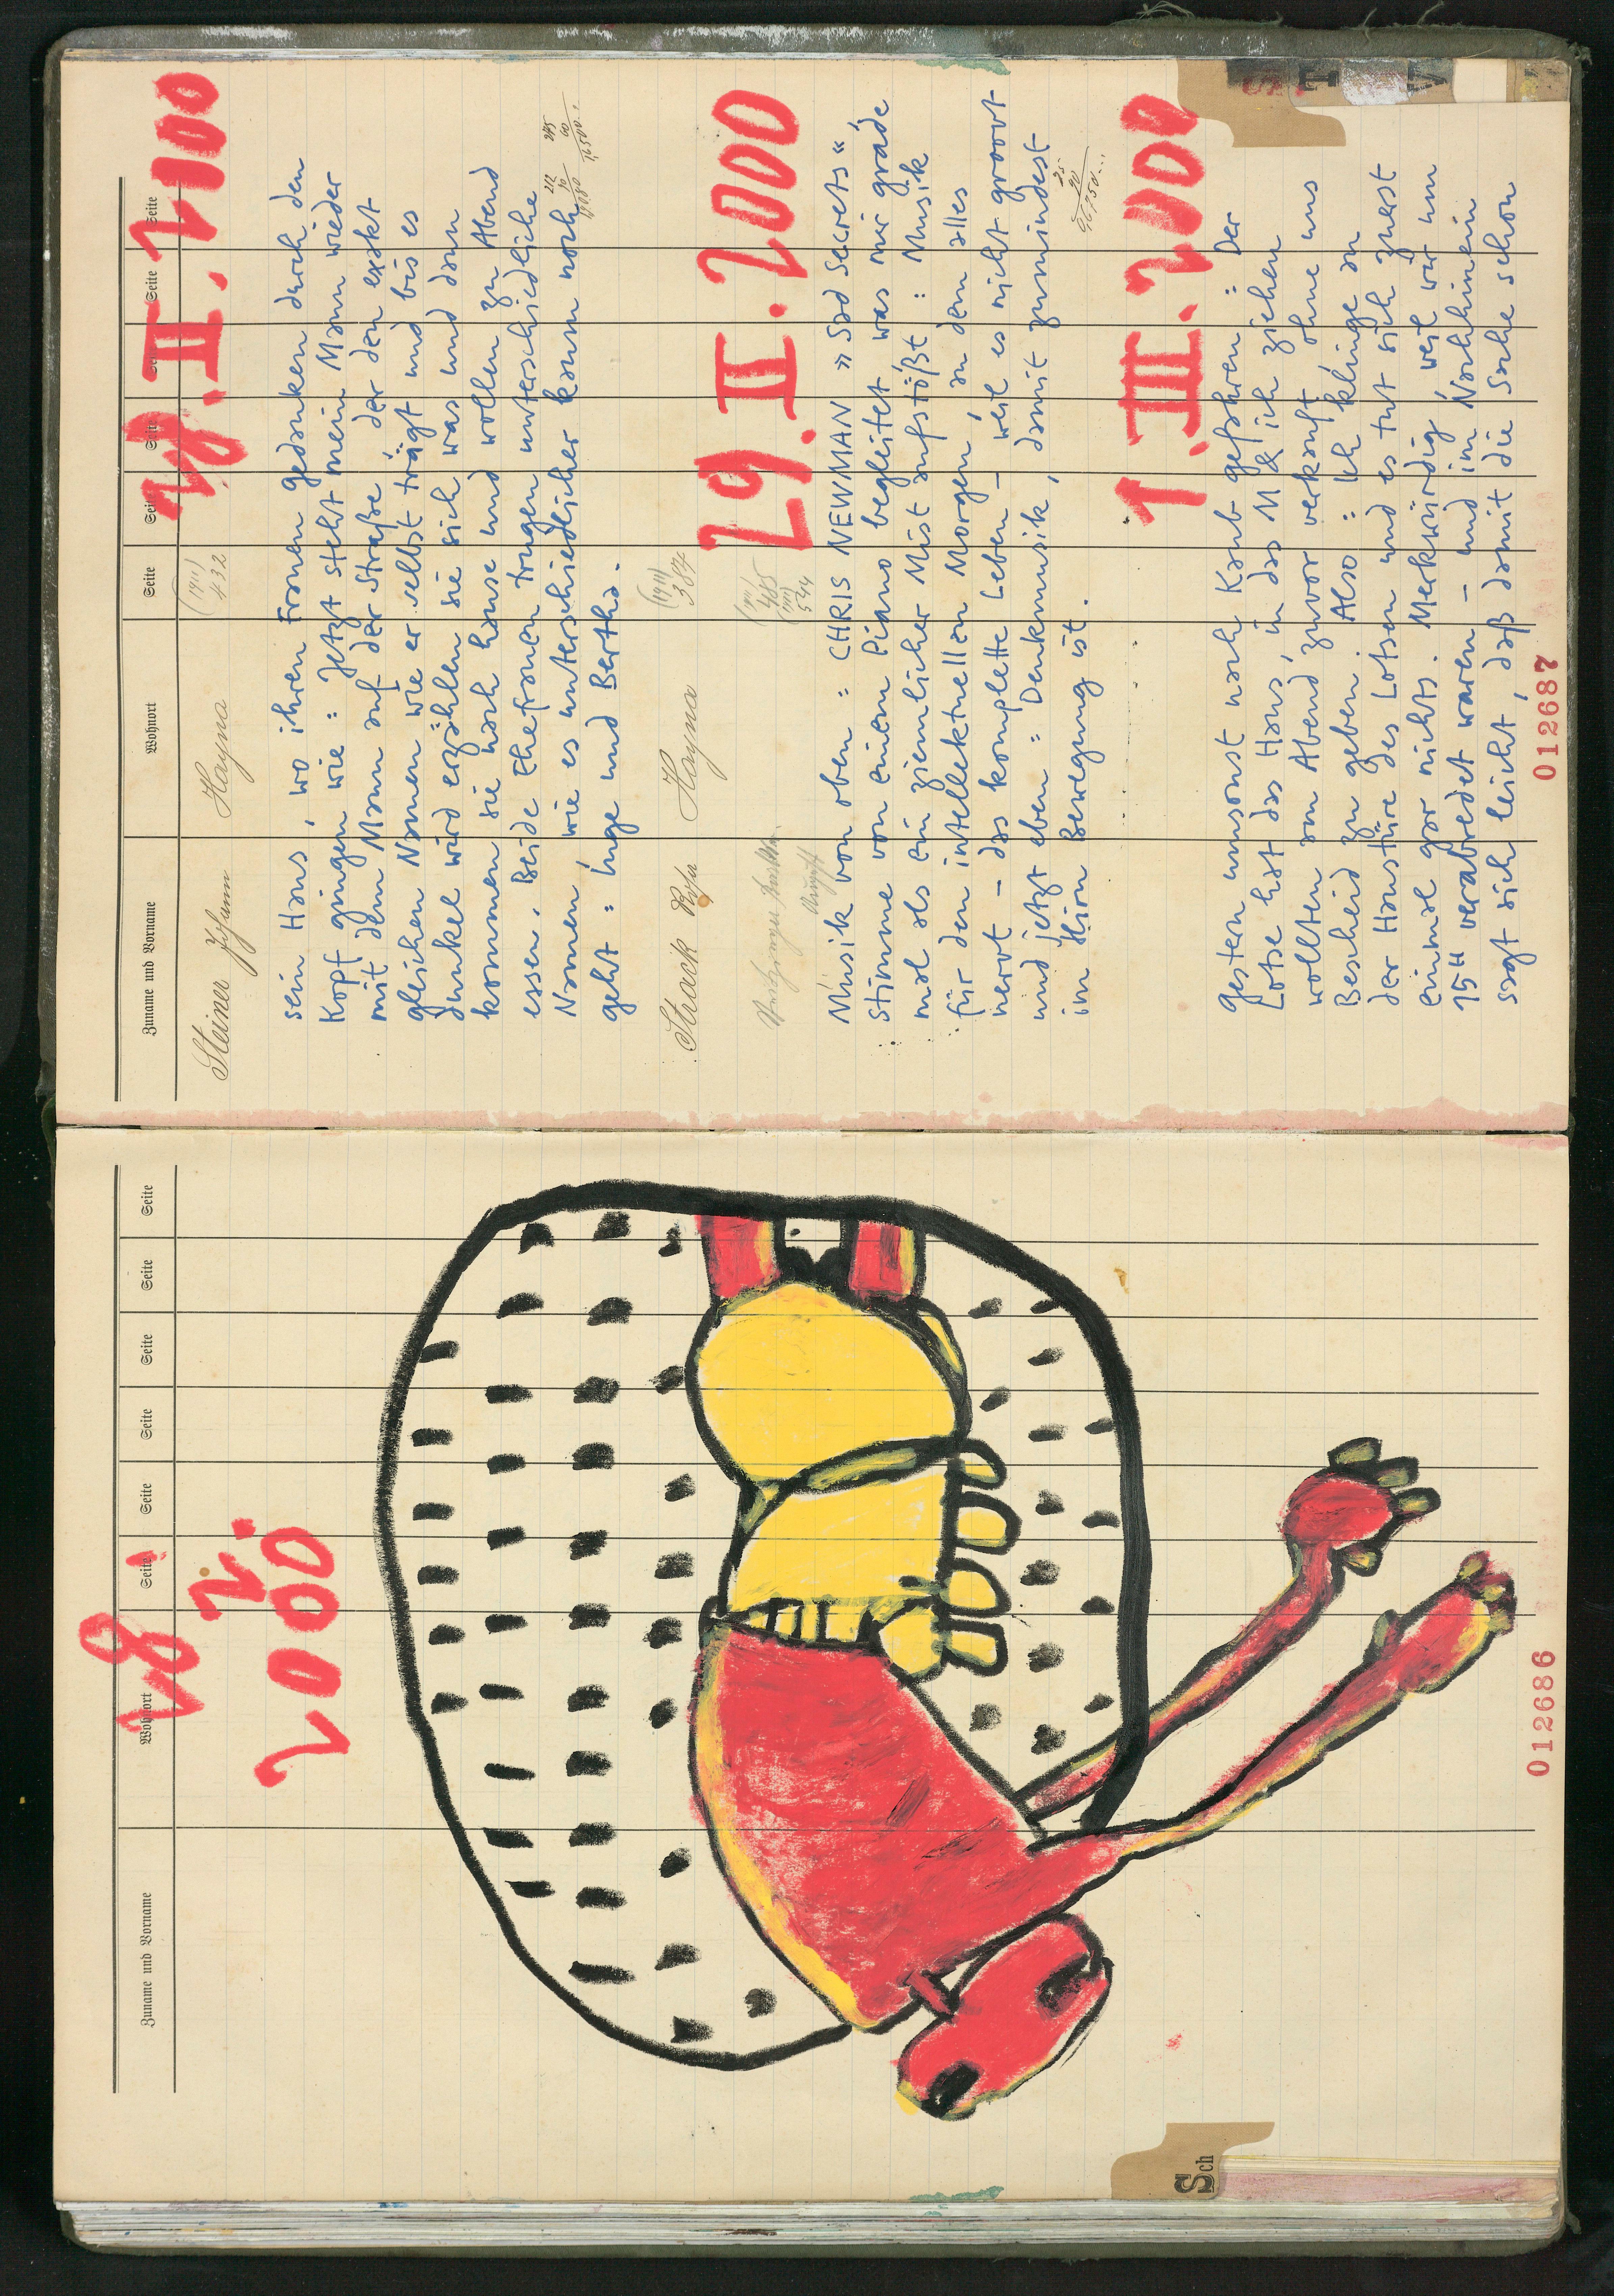 Zuname und Vorname Wohnort Seite Seite Seite Seite Seite Seite
28.
2.
2000
Sch
012686
Zuname und Vorname Wohnort Seite Seite Seite Seite Seite Seite
28.II.2000
Steiner Johann Hayna (1911) 432
sein Haus, wo ihren Frauen gedanken durch den
Kopf gingen wie: Jetzt steht mein Mann wieder
mit dem Mann auf der Straße, der den exakt
gleichen Namen wie er selbst trägt und bis es
dunkel wird erzählen sie sich was und dann
kommen sie nach hause und wollen zu Abend
essen. Beide Ehefrauen trugen unterschiedliche
Namen, wie es unterschiedlicher kaum noch
geht: Inge und Bertha.
Strack Rosa Hayna (1911) 384
29.II.2000
Musik von oben: CHRIS NEWMAN »Sad Secrets«,
Stimme von einem Piano begleitet was mir grade
mal als ein ziemlicher Mist aufstößt: Musik
für den intellektuellen Morgen, an dem alles
nervt – das komplette Leben – weil es nicht groovt
und jetzt eben: Denkmusik, damit zumindest
im Hirn Bewegung ist.
1.III.2000
gestern umsonst nach Kaub gefahren: Der
Lotse hat das Haus, in das M & ich ziehen
wollten am Abend zuvor verkauft, ohne uns
Bescheid zu geben. Also: Ich klinge an
der Haustüre des Lotsen und es tut sich zuerst
einmal gar nichts. Merkwürdig, weil wir um
15H verabredet waren – und im Nachhinein
sagt sich leicht, daß damit die Sache schon
012687